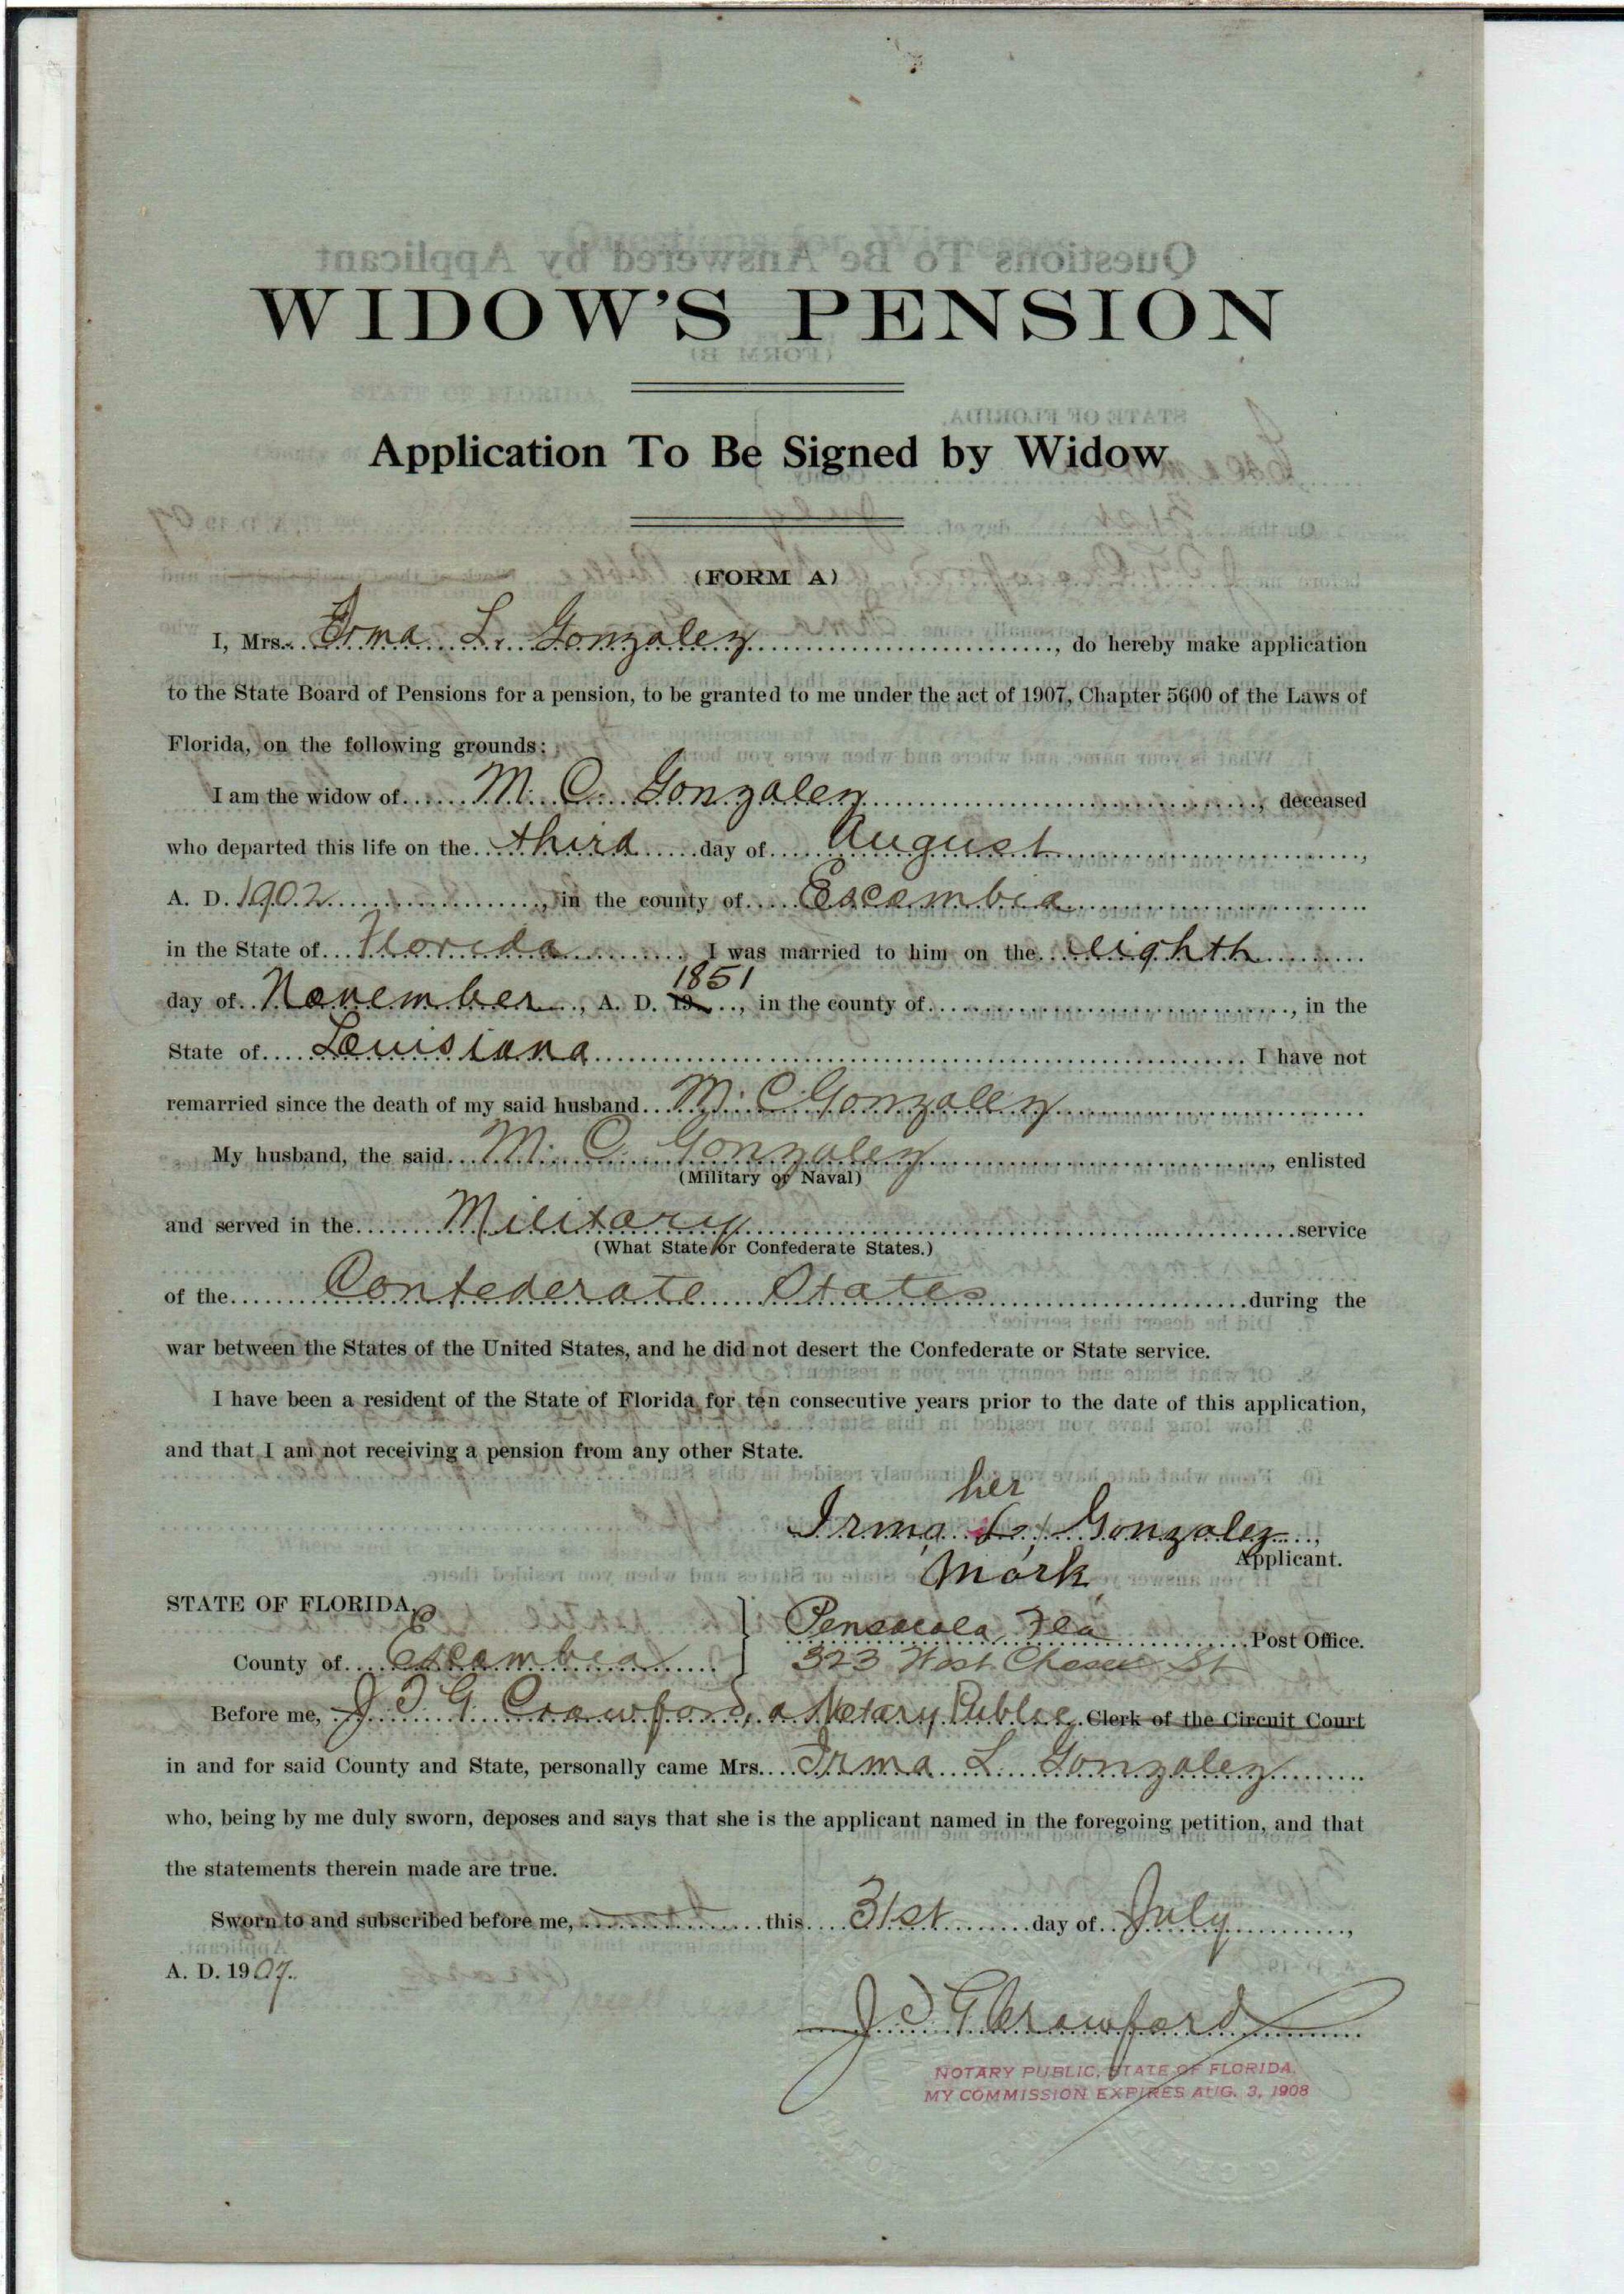 WIDOW'S PENSION
Application To Be Signed by Widow
(FORM A)
I, Mrs. Irma L. Gonzalez, do hereby make application
to the State Board of Pensions for a pension, to be granted to me under the act of 1907, Chapter 5600 of the Laws of
Florida, on the following grounds:
I am the widow of M. C. Gonzalez, deceased
who departed this life on the third day of August,
A. D. 1902, in the county of Escambia
in the State of Florida. I was married to him on the eighth
1851
day of November, A. D. 19, in the county of, in the
State of Louisiana. I have not
remarried since the death of my said husband M. C Gonzalez
My husband, the said M. C. Gonzalez, enlisted
(Military or Naval)
and served in the Military service
(What State or Confederate States.)
of the Confederate States during the
war between the States of the United States, and he did not desert the Confederate or State service.
I have been a resident of the State of Florida for ten consecutive years prior to the date of this application,
and that I am not receiving a pension from any other State.
her
Irma L. Gonzalez,
Applicant.
mark
STATE OF FLORIDA,
Pensacola Fla Post Office.
County of Escambia
323 West St
Before me, J T G Crawford, a Notary Public Clerk of the Circuit Court
in and for said County and State, personally came Mrs. Irma L. Gonzalez
who, being by me duly sworn, deposes and says that she is the applicant named in the foregoing petition, and that
the statements therein made are true.
Sworn to and subscribed before me, this 31st day of July,
A. D. 1907.
J T G Crawford
NOTARY PUBLIC, STATE OF FLORIDA.
MY COMMISSION EXPIRES AUG. 3, 1908